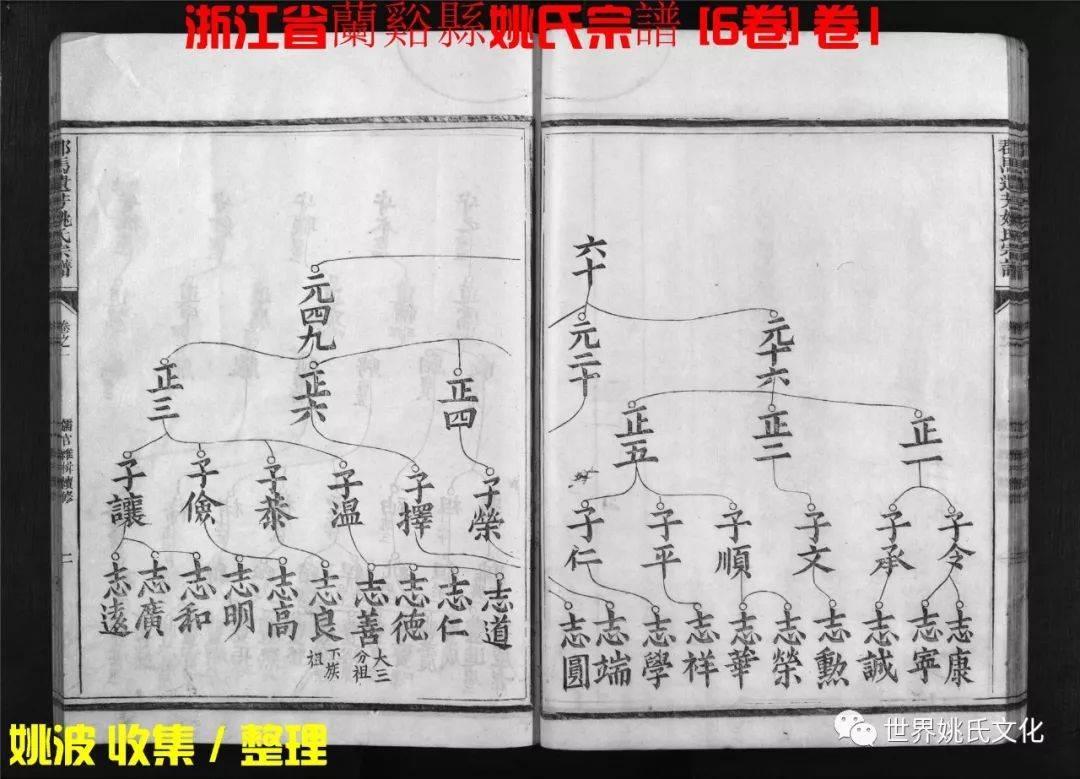 浙江省蘭谿縣姚氏宗譜 [6卷] 卷1
郡馬遺芳姚氏宗譜
六十
元十六
元二十
正一
正二
正五
子令
子承
子文
子順
子平
子仁
志康
志寧
志誠
志勲
志榮
志華
志祥
志學
志端
志圓
元四九
正四
正六
正三
子榮
子擇
子温
子恭
子儉
子讓
志道
志仁
志德
志善
大三分祖
志良
下族祖
志高
志明
志和
志廣
志遠
郡馬遺芳姚氏宗譜
卷之一
一
姚波 收集 / 整理
世界姚氏文化